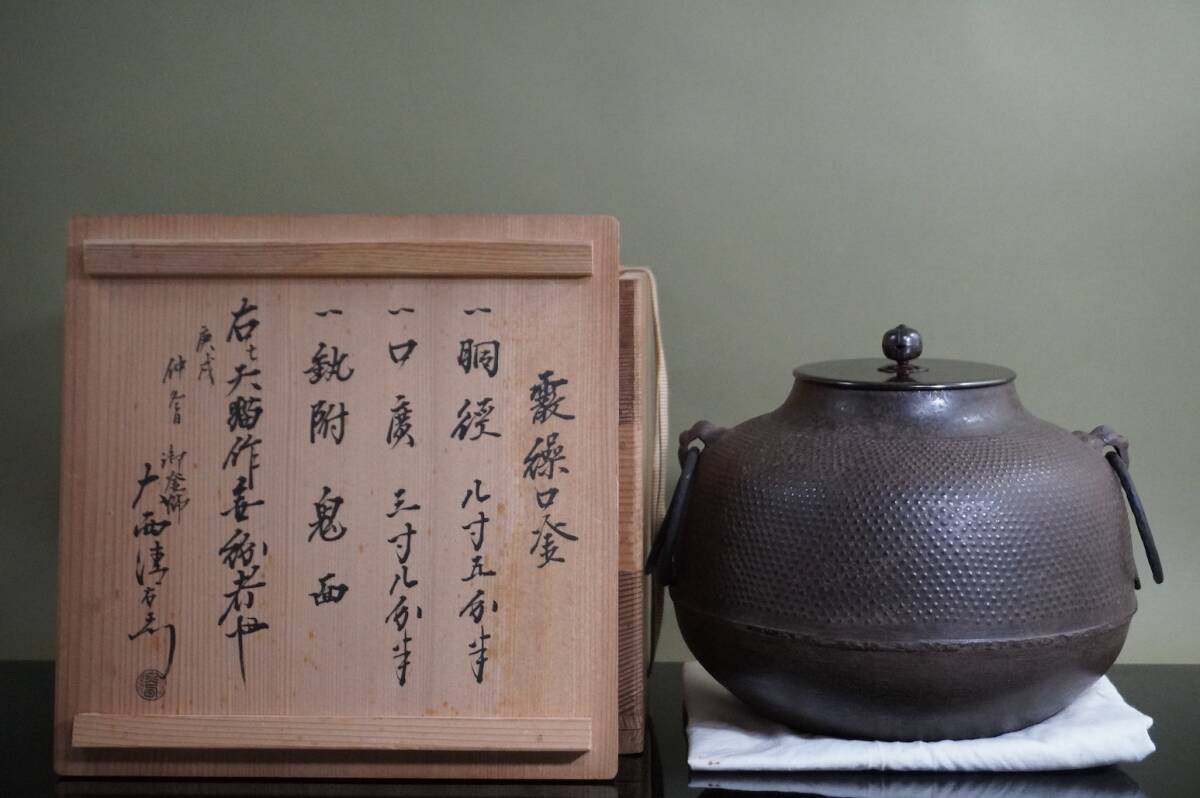 霰繰口釜
一胴径 八寸五分半
一口廣 三寸八分半
一釻附 鬼面
右古天猫作無紛者也
庚戌
仲冬 御釜師
大西清右衛門